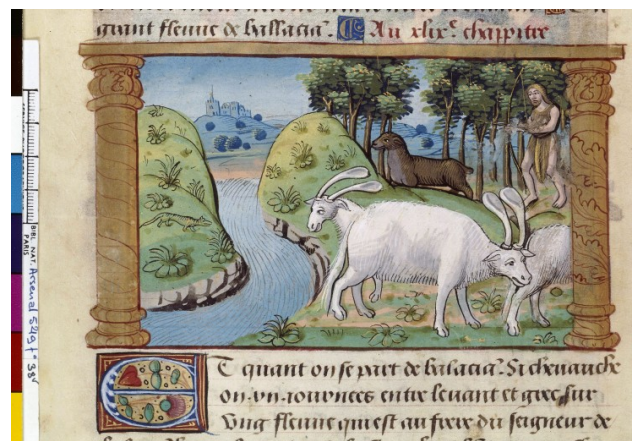 grant fleuue de ballacia. Au xlix.e chappitre
BIBL. NAT.
PARIS
Arsenal 5219 f° 38v
Et quant on se part de balacia. Si cheuauche
on .vii. iournees entre leuant et grec sur
vng fleuue qui est au frere du seigneur de